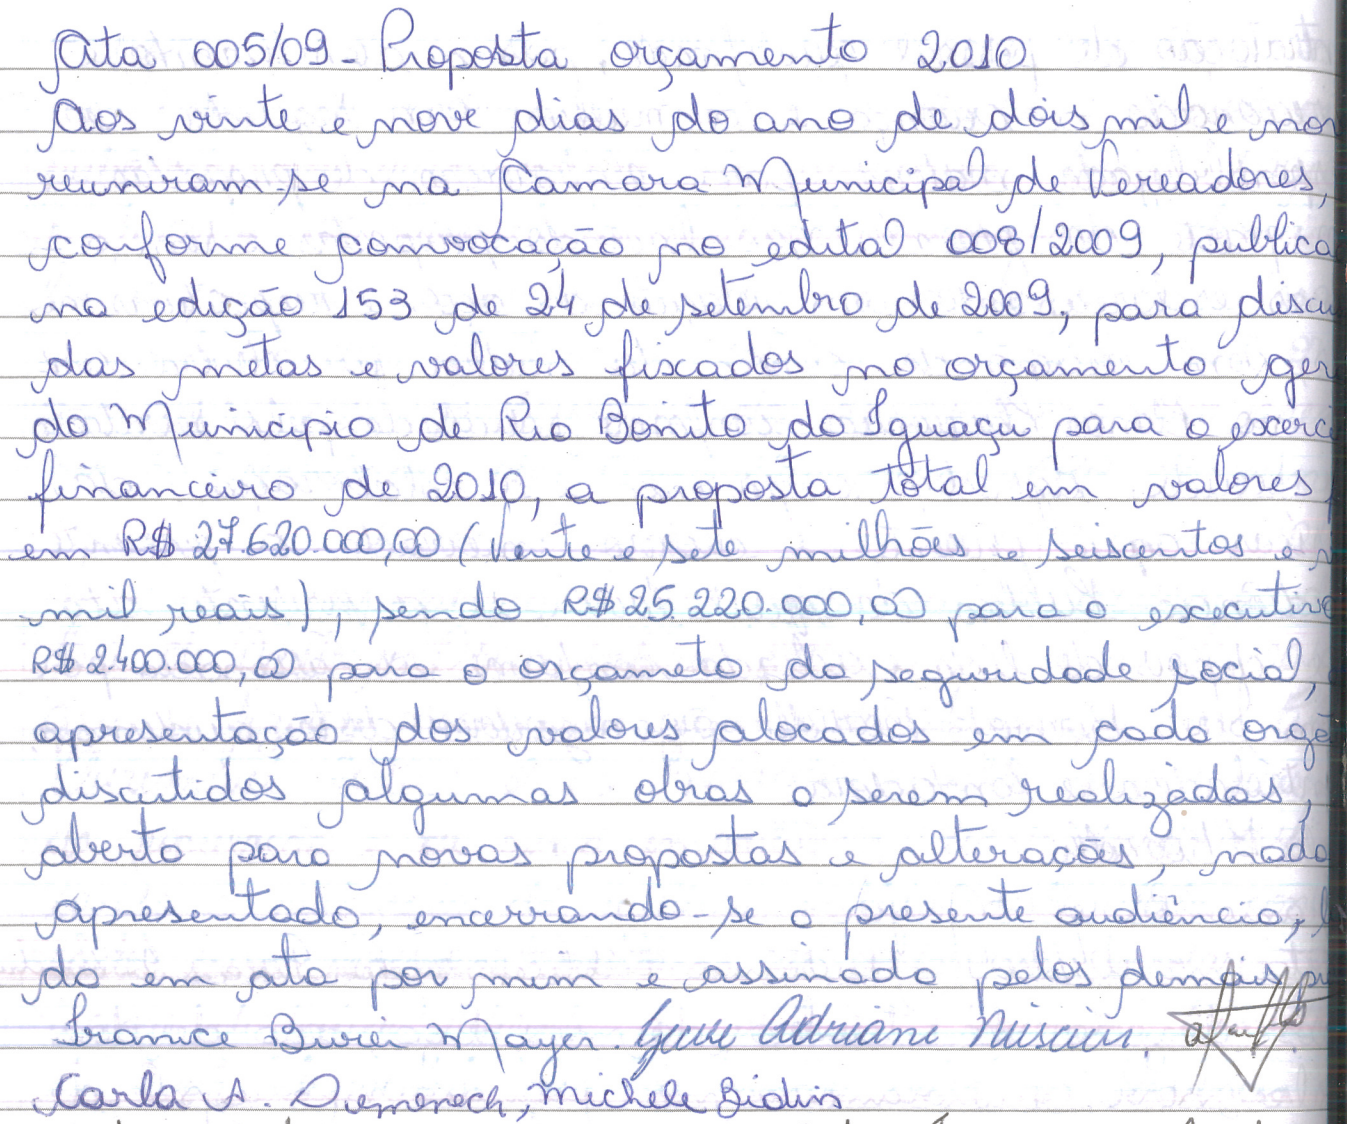 Ata 005/09 - Proposta orçamento 2010
Aos vinte e nove dias do ano de dois mil e nov
reuniram-se na Camara Municipal de Vereadores,
conforme convocação no edital 008/2009, publica
na edição 153 de 24 de setembro de 2009, para discu
das metas e valores fixados no orçamento ger
do Municipio de Rio Bonito do Iguaçu para o exerci
financeiro de 2010, a proposta total em valores
em R$ 27.620.000,00 (Vente e sete milhões e seiscentos e v
mil reais), sendo R$ 25.220.000,00 para o executivo
R$ 2.400.000,00 para o orçameto da seguridade social,
apresentação dos valores alocados em cada orgã
discutidos algumas obras a serem realizadas,
aberto para novas propostas e alterações, nada
apresentado, encerrando-se a presente audiência, l
da em ata por mim e assinada pelos demais pr
Franice Burei Mayer. Adriane
Carla A. Domenech, Michele Bidin